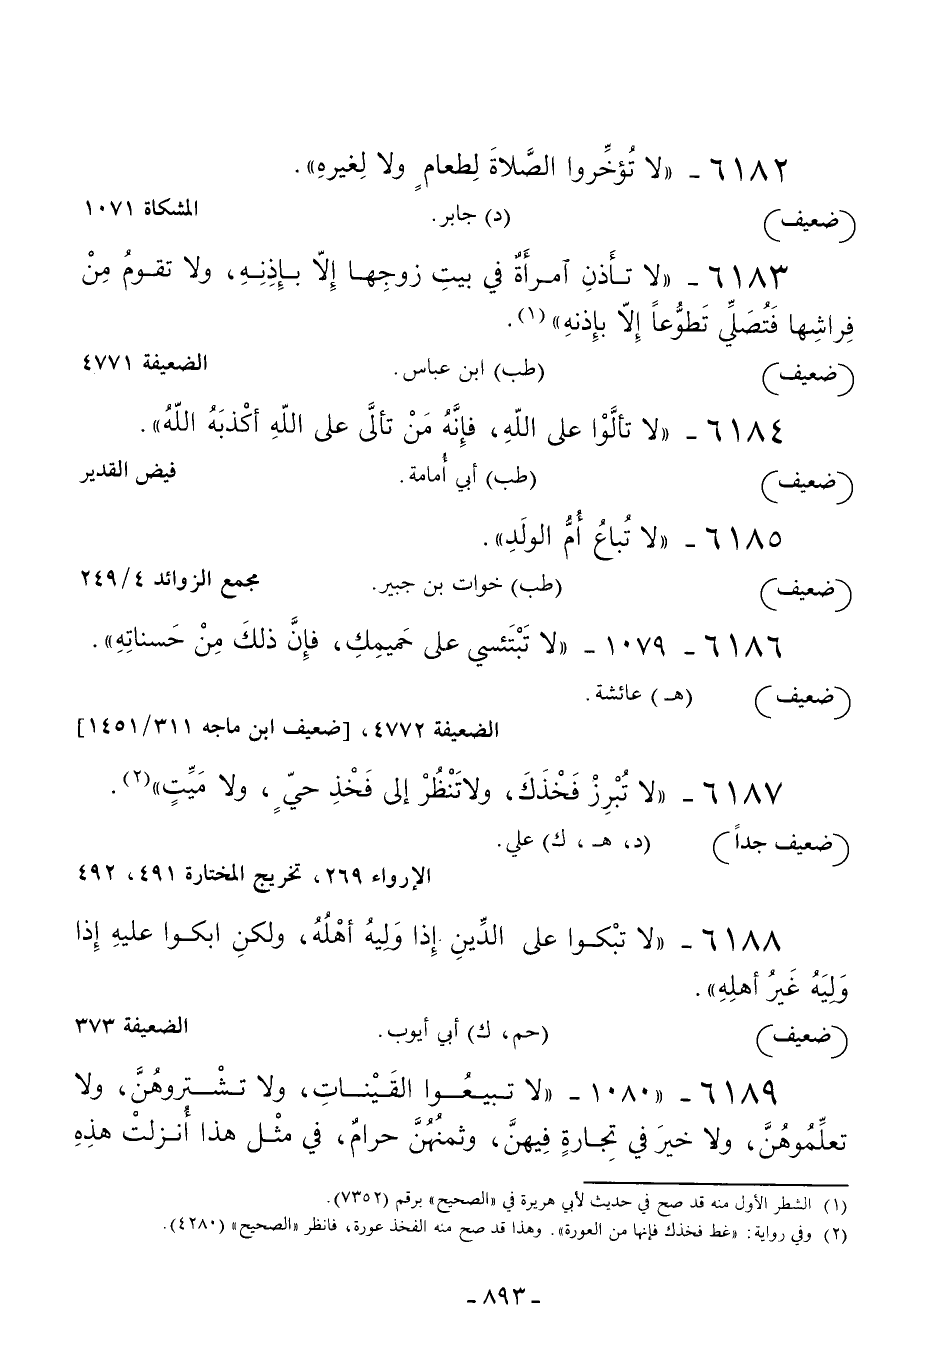 ٦١٨٢ - «لا تُؤخِّروا الصَّلاةَ لِطعامٍ ولا لِغيرِهِ».
(ضعيف) (د) جابر. المشكاة ١٠٧١
٦١٨٣ - «لا تـأذنِ آمـرأةٌ في بيتِ زوجِهـا إلّا بـإذِنِـهِ، ولا تقـومُ مِنْ
فِراشِها فَتُصَلِّي تَطوُّعاً إلّا بإذنهِ»(١).
(ضعيف) (طب) ابن عباس. الضعيفة ٤٧٧١
٦١٨٤ - «لا تألَّوْا على اللّهِ، فإنَّهُ مَنْ تألَّى على اللّهِ أكْذبَهُ اللّهُ».
(ضعيف) (طب) أبي أُمامة. فيض القدير
٦١٨٥ - «لا تُباعُ أمُّ الولَدِ».
(ضعيف) (طب) خوات بن جبير. مجمع الزوائد ٢٤٩/٤
٦١٨٦ - ١٠٧٩ - «لا تَبْتَئسي على حَميمِكِ، فإنَّ ذلكَ مِنْ حَسناتِهِ».
(ضعيف) (هـ) عائشة.
الضعيفة ٤٧٧٢، [ضعيف ابن ماجه ١٤٥١/٣١١]
٦١٨٧ - «لا تُبْرِزْ فَخْذَكَ، ولاتَنْظُرْ إلى فَخْذِ حيٍّ، ولا مَيِّتٍ»(٢).
(ضعيف جداً) (د، هـ، ك) علي.
الإرواء ٢٦٩، تخريج المختارة ٤٩١، ٤٩٢
٦١٨٨ - «لا تبْكـوا على الدِّينِ إذا وَلِيهُ أهْلُهُ، ولكنِ ابكـوا عليهِ إذا
وَلِيَهُ غَيرُ أهلِهِ».
(ضعيف) (حم، ك) أبي أيوب. الضعيفة ٣٧٣
٦١٨٩ - «١٠٨٠ - «لا تـبيـعُـوا القَيْنـاتِ، ولا تـشْـتروهُنَّ، ولا
تعلِّمُوهُنَّ، ولا خيرَ في تِجـارةٍ فِيهنَّ، وثمنُهُنَّ حرامٌ، في مثْـل هذا أُنـزلتْ هذِهِ
(١) الشطر الأول منه قد صح في حديث لأبي هريرة في «الصحيح» برقم (٧٣٥٢).
(٢) وفي رواية: «غط فخذك فإنها من العورة». وهذا قد صح منه الفخذ عورة، فانظر «الصحيح» (٤٢٨٠).
- ٨٩٣ -